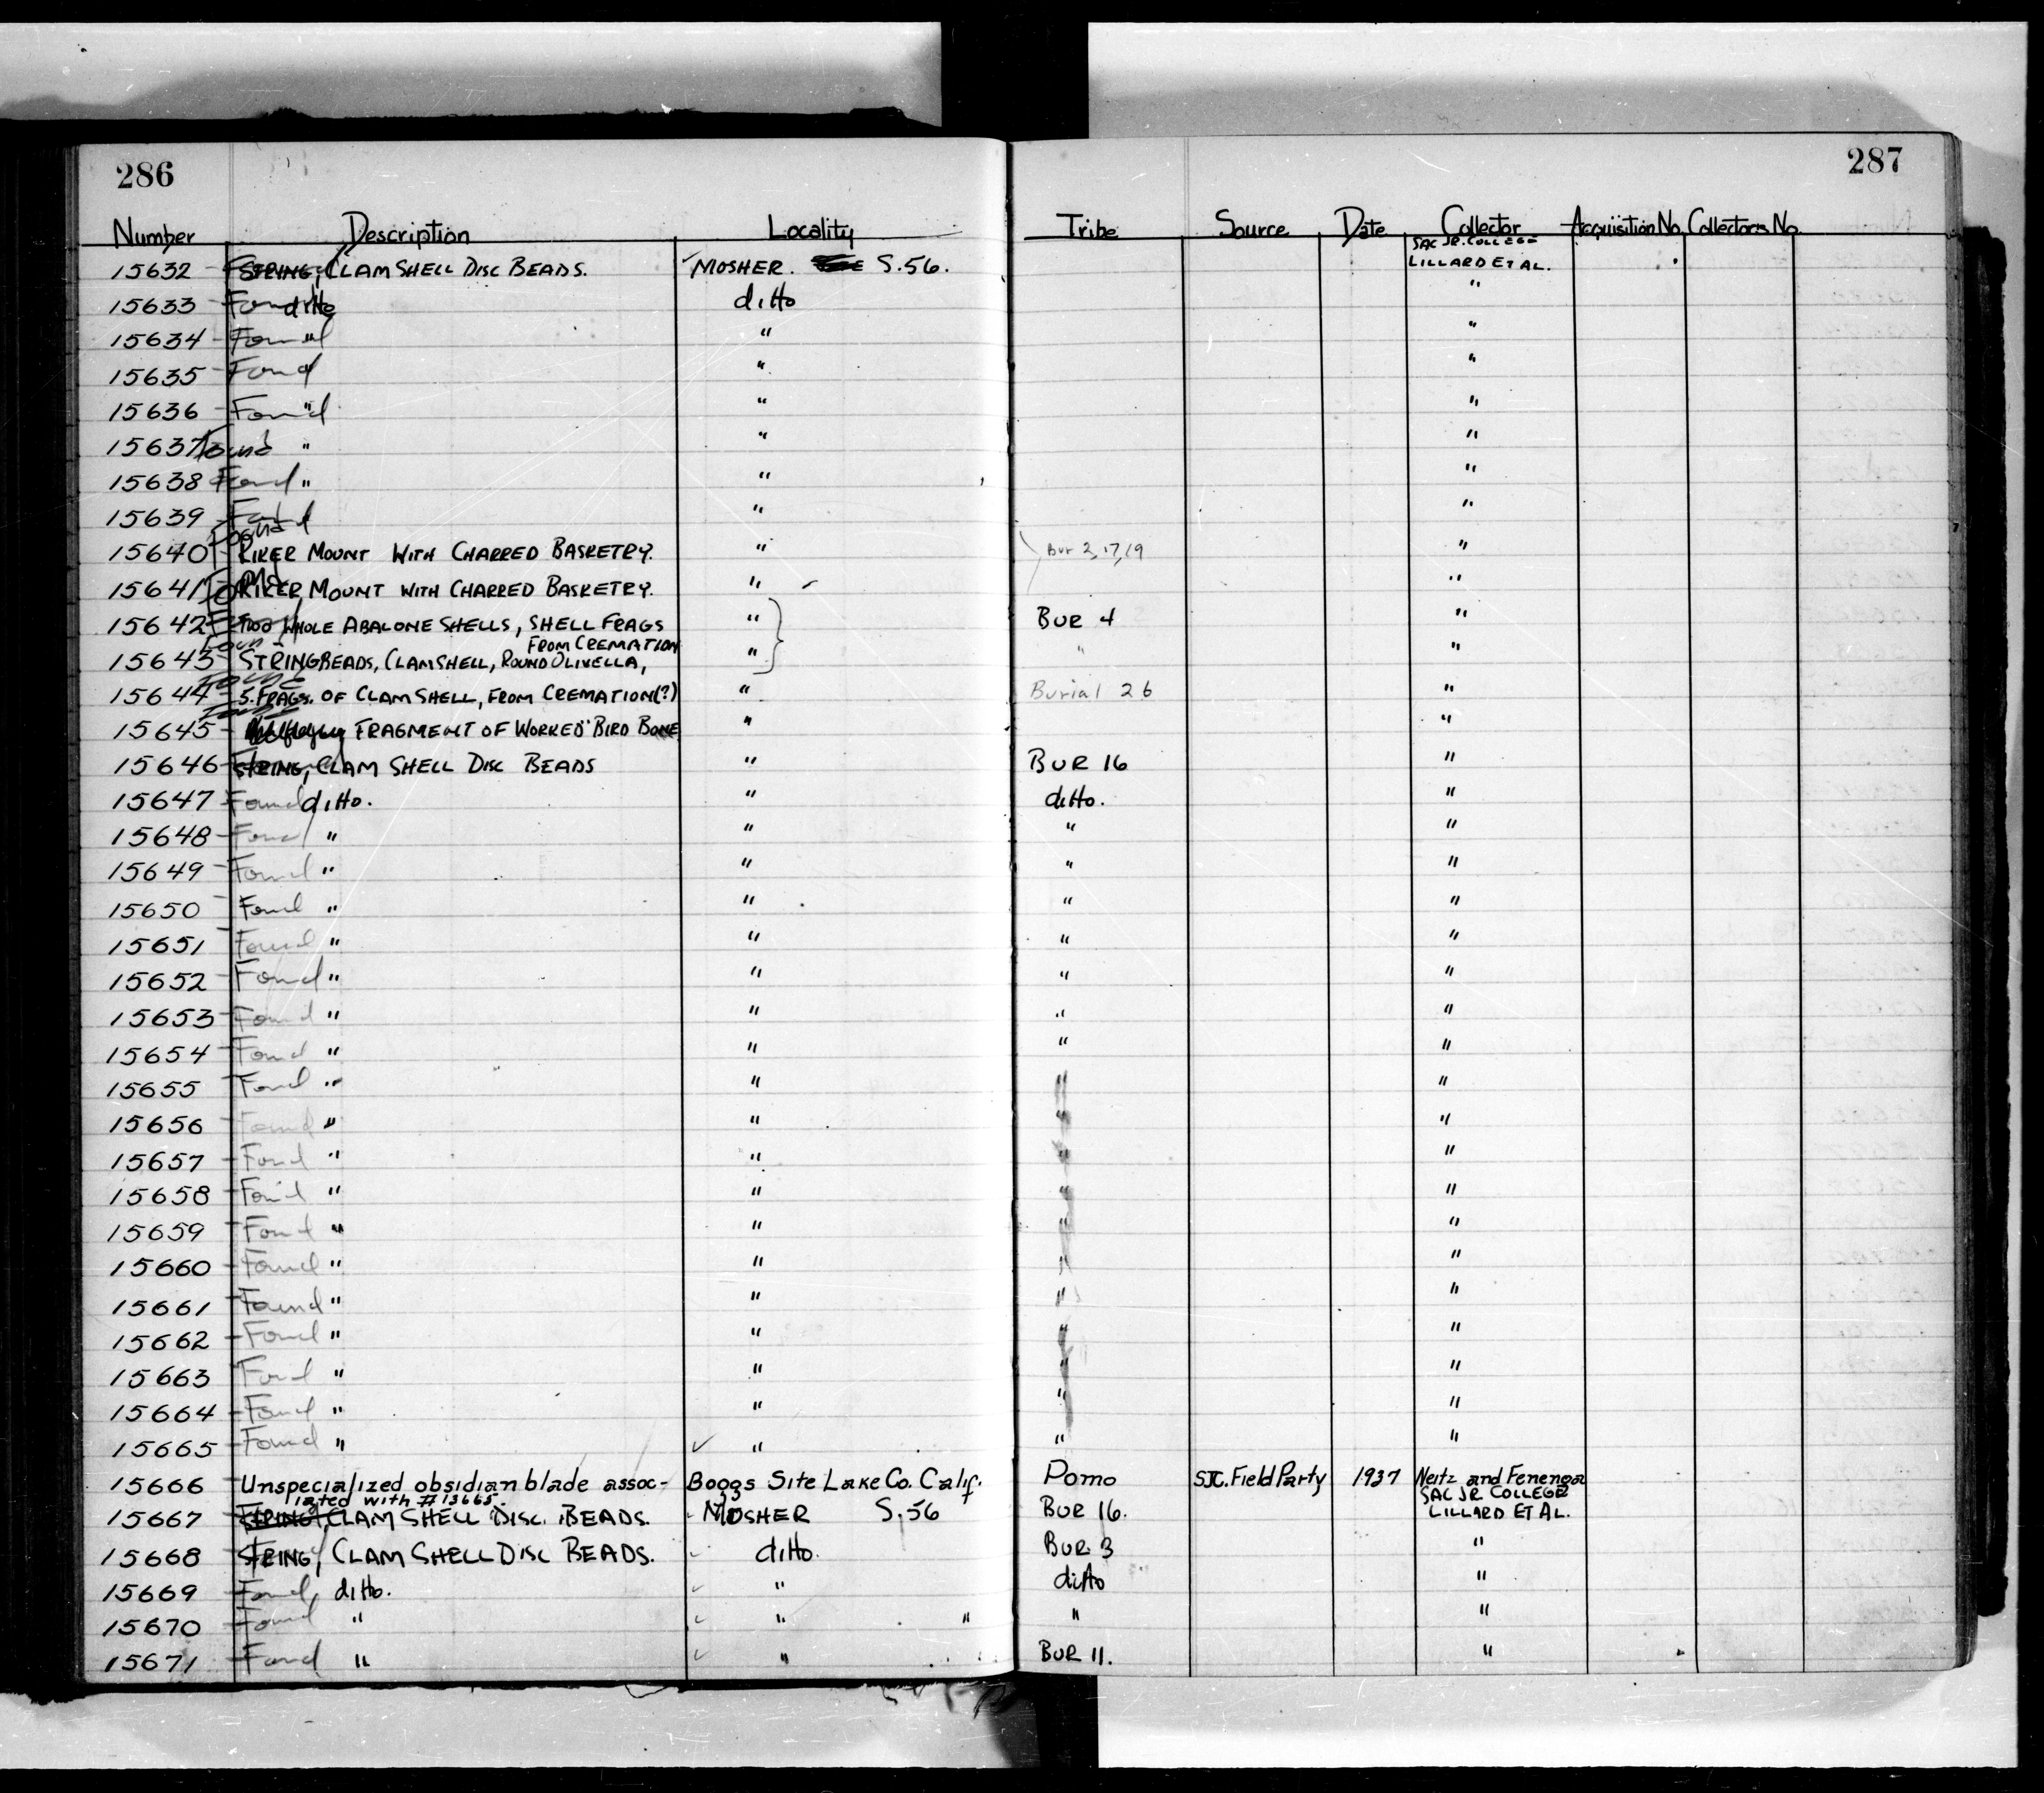 286
287
Number Description Locality Tribe Source Date Collector Acquisition No. Collectors No.
SAC JR. COLLEGE
15632 STRING, CLAM SHELL DISC BEADS. MOSHER. S.56. LILLARD ET AL.
15633 Found ditto ditto "
15634 Found " " "
15635 Found " " "
15636 Found " " "
15637 Found " " "
15638 Found " " "
15639 Found " "
Found
15640 RIKER MOUNT WITH CHARRED BASKETRY. " Bur 2, 17, 19 "
15641 Found RIKER MOUNT WITH CHARRED BASKETRY. " "
15642 TWO WHOLE ABALONE SHELLS, SHELL FRAGS " BUR 4 "
Found FROM CREMATION
15643 STRING BEADS, CLAMSHELL, ROUND OLIVELLA, " " "
Found
15644 5. FRAGS. OF CLAM SHELL, FROM CREMATION(?) " Burial 26 "
Found
15645 FRAGMENT OF WORKED BIRD BONE. " "
15646 STRING, CLAM SHELL DISC BEADS " BUR 16 "
15647 Found ditto. " ditto. "
15648 Found " " " "
15649 Found " " " "
15650 Found " " " "
15651 Found " " " "
15652 Found " " " "
15653 Found " " " "
15654 Found " " " "
15655 Found " " " "
15656 Found " " " "
15657 Found " " " "
15658 Found " " " "
15659 Found " " " "
15660 Found " " " "
15661 Found " " " "
15662 Found " " " "
15663 Found " " " "
15664 Found " " " "
15665 Found " " " "
15666 Unspecialized obsidian blade assoc- Boggs Site Lake Co. Calif. Pomo SJC. Field Party 1937 Neitz and Fenenga
iated with #15665. SAC JR COLLEGE
15667 STRING, CLAM SHELL DISC. BEADS. MOSHER S.56 BUR 16. LILLARD ET AL.
15668 STRING, CLAM SHELL DISC BEADS. ditto. BUR. 3 "
15669 Found, ditto. " ditto "
15670 Found " " " " "
15671 Found " " BUR 11. "